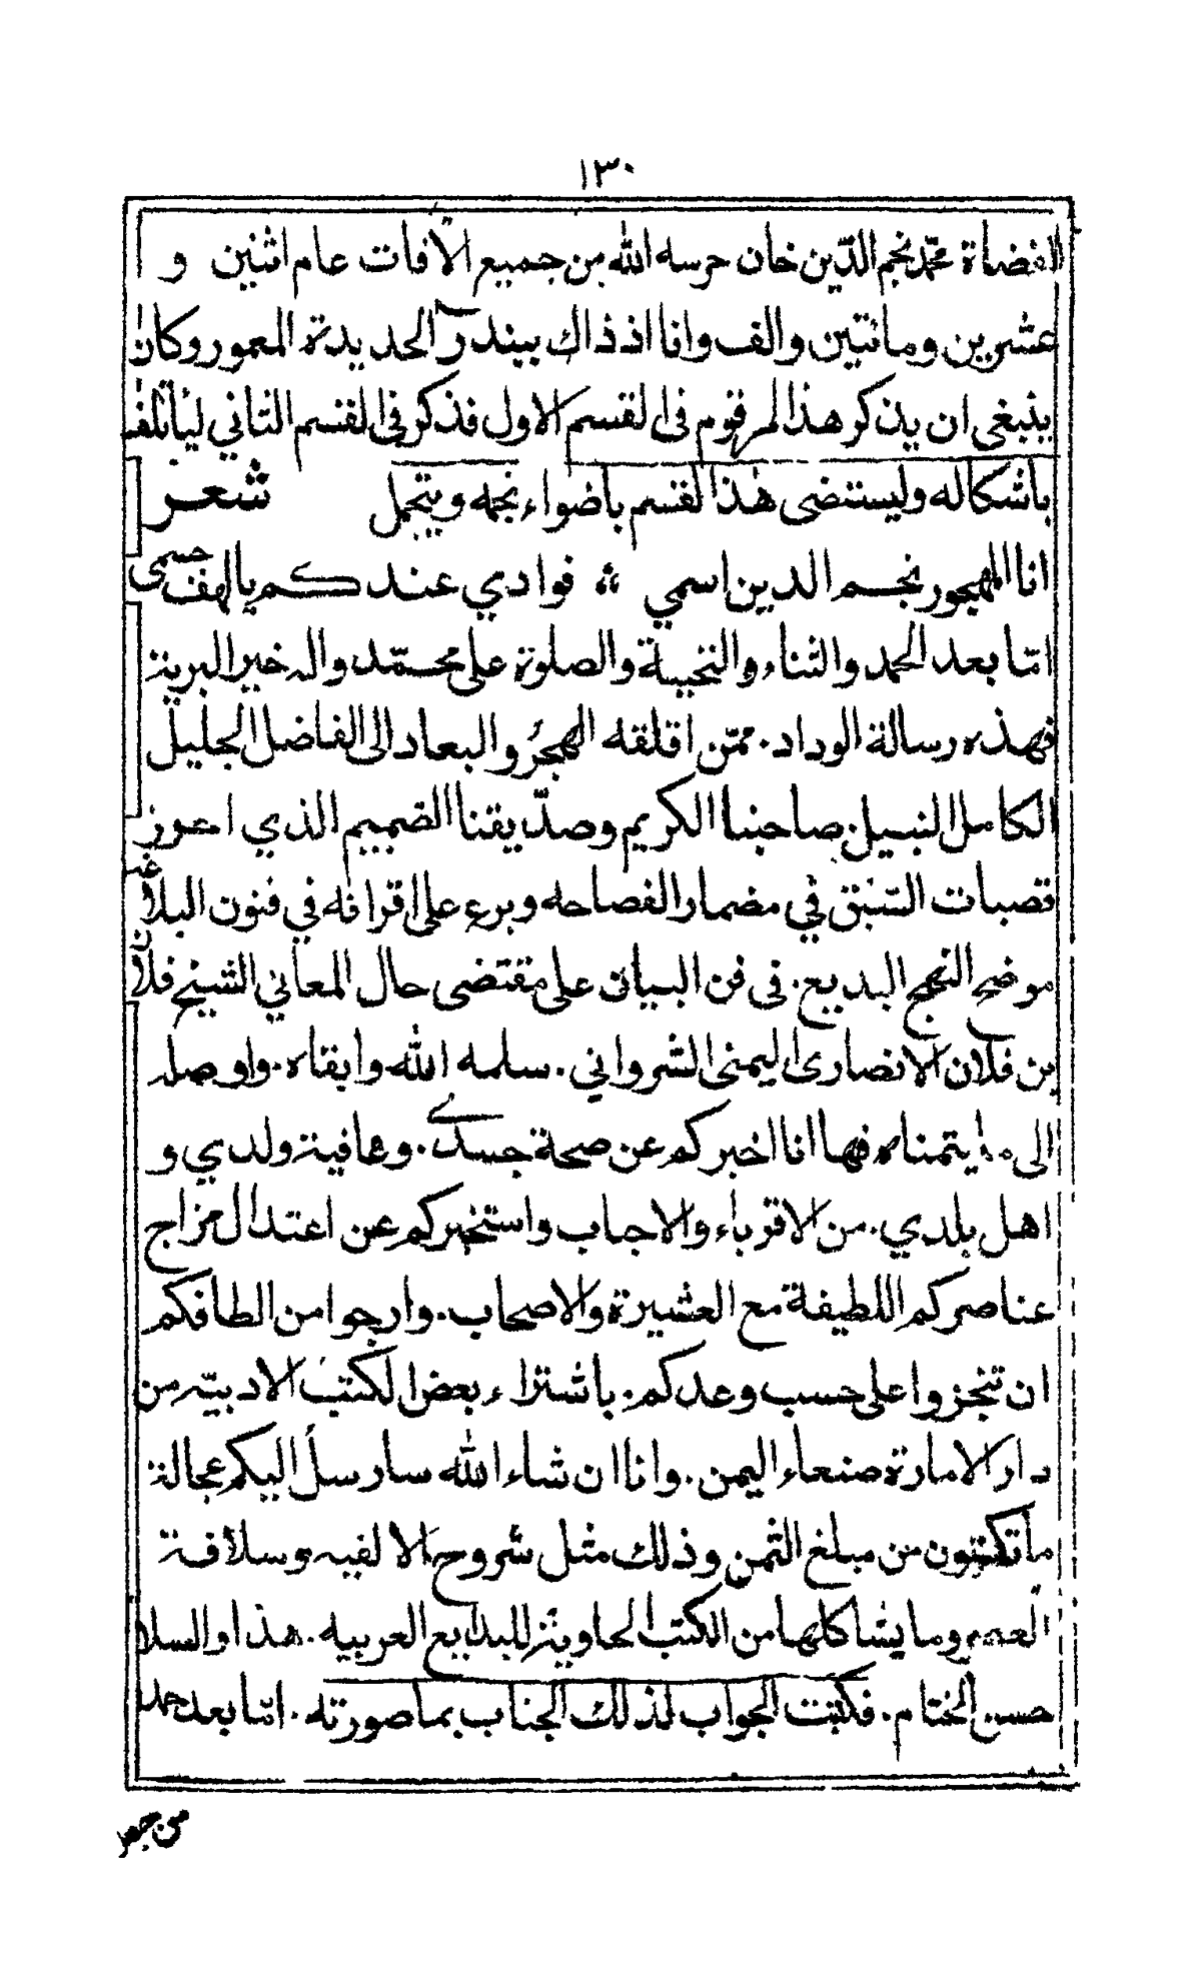 ١٣٠
القضاة محمّد نجم الدّين خان حرسه الله من جميع الآفات عام اثنين و
عشرين ومائتين والف وانا اذ ذاك ببندر الحديدة المعمور وكان
ينبغي ان يذكر هذا المرقوم في القسم الاول فذكر في القسم الثاني ليأتلف
باشكاله وليستضى هذا القسم باضواء نجمه ويتجمل شعر
انا المهجور نجم الدين اسمي ؞ فوادي عندكم يا لهف جسمى
امّا بعد الحمد والثناء والتحية والصلوة على محمّد واله خير البرية
فهذه رسالة الوداد. ممّن اقلقه الهجرُ والبعاد الى الفاضل الجليل
الكامل النبيل صاحبنا الكريم وصدّيقنا الصّميم الذي احرز
قصبات السّبق في مضمار الفصاحه وبرع على اقرانه في فنون البلاغه
موضح النهج البديع. في فن البيان على مقتضى حال المعاني الشيخ فلان
بن فلان الانصارى اليمنى الشرواني. سلمه الله وابقاه. واوصله
الى ما يتمناه فها انا اخبركم عن صحة جسدي. وعافية ولدي و
اهل بلدي. من الاقرباء والاحباب واستخبركم عن اعتدال مزاج
عناصركم اللطيفة مع العشيرة والاصحاب. وارجوا من الطافكم
ان تنجزوا على حسب وعدكم. باشتراء بعض الكتب الادبيّه من
دار الامارة صنعاء اليمن. وانا ان شاء الله سارسل اليكم عجالة
ما تكتبون من مبلغ الثمن وذلك مثل شروح الالفيه وسلافة
العصر وما يشاكلها من الكتب الحاوية للبدايع العربيه. هذا والسلام
حسن الختام. فكتبت الجواب لذلك الجناب بما صورته. امّا بعد حمد
من جعل